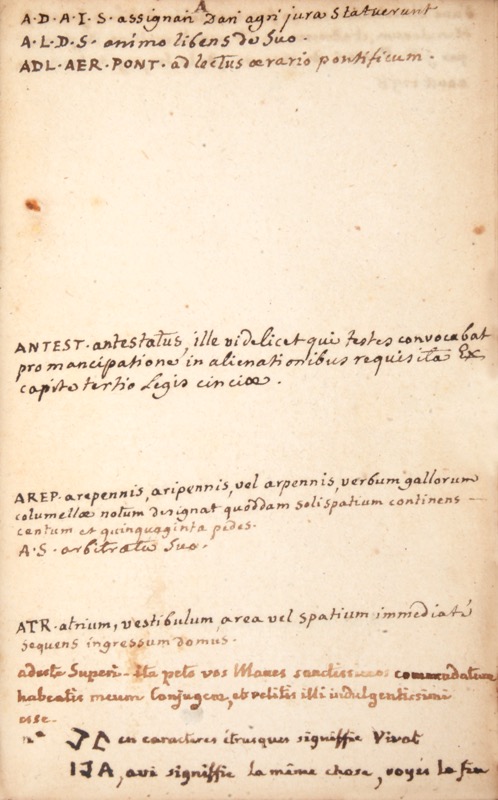 A
A·D·A·I·S· assignari Dari agri jura Statuerunt
A·L·D·S· animo libens de Suo·
ADL·AER·PONT· adlectus ærario pontificum·
ANTEST· antestatus, ille videlicet qui testes convocabat
pro mancipatione in alienationibus requisita Ex
capite tertio Legis cinciæ.
AREP· arepennis, aripennis, vel arpennis, verbum gallorum
columellæ notum designat quoddam soli spatium continens
centum et quinquaginta pedes.
A·S· arbitratu Suo.
ATR· atrium, vestibulum, area vel spatium immediaté
sequens ingressum domus.
adeste Superi - Ita peto vos Manes sanctissimos commendatum
habeatis meum Conjugem, et velitis illi indulgentissimi
esse.
en caracteres étrusques signiffie Vivat
avi signiffie la même chose, voyés la fin